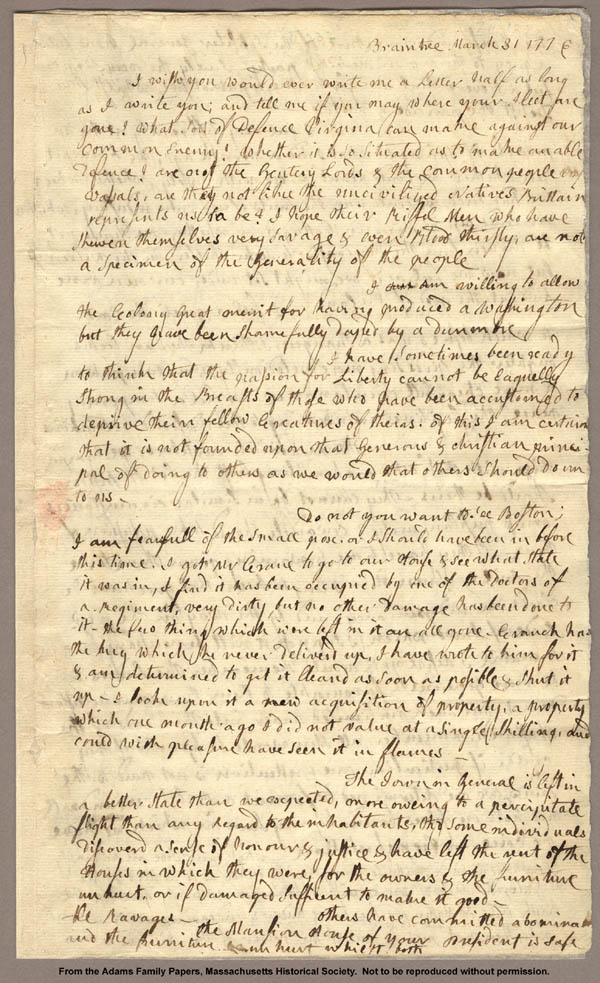 Braintree March 31 1776
I wish you would ever write me a Letter half as long
as I write you; and tell me if you may where your Fleet are
gone? What sort of Defence Virginia can make against our
common Enemy? Whether it is so situated as to make an able
Defence? are not the Gentery Lords & the common people
vassals, are they not like the uncivilized Natives Brittain
represents us to be? I hope their Riffel Men who have
shewen themselves very savage & even Blood thirsty; are not
a specimen of the Generality of the people
I am willing to allow
the Colony great merrit for having produced a Washington
but they have been shamefully duped by a Dunmore
I have sometimes been ready
to think that the passion for Liberty cannot be Eaquelly
Strong in the Breasts of those who have been accustomed to
deprive their fellow Creatures of theirs. of this I am certain
that it is not founded upon that generous & christian princi
pal of doing to others as we would that others should do un
to us –
Do not you want to see Boston;
I am fearfull of the small pox, or I should have been in before
this time. I got Mr Crane to go to our House & see what state
it was in, I find it has been occupied by one of the Doctors of
a Regiment, very dirty but no other Damage has been done to
it – the few things which were left in it are all gone. Cranch has
the key which he never deliverd up, I have wrote to him for it
& am determined to get it cleand as soon as posible & shut it
up – I look upon it a new acquisition of property, a property
which one month ago I did not value at a single Shilling, and
could with pleasure have seen it in flames –
The Town in General is left in
a better state than we expected, more oweing to a percipitate
flight than any Regard to the inhabitants, tho some individuals
discoverd a sense of honour & justice & have left the rent of the
Houses in which they were, for the owners & the furniture
unhurt, or if damaged sufficent to make it good –
others have committed abomina
ble Ravages –
the Mansion House of your President is safe
and the furniture unhurt whilst both
From the Adams Family Papers, Massachusetts Historical Society. Not to be reproduced without permission.